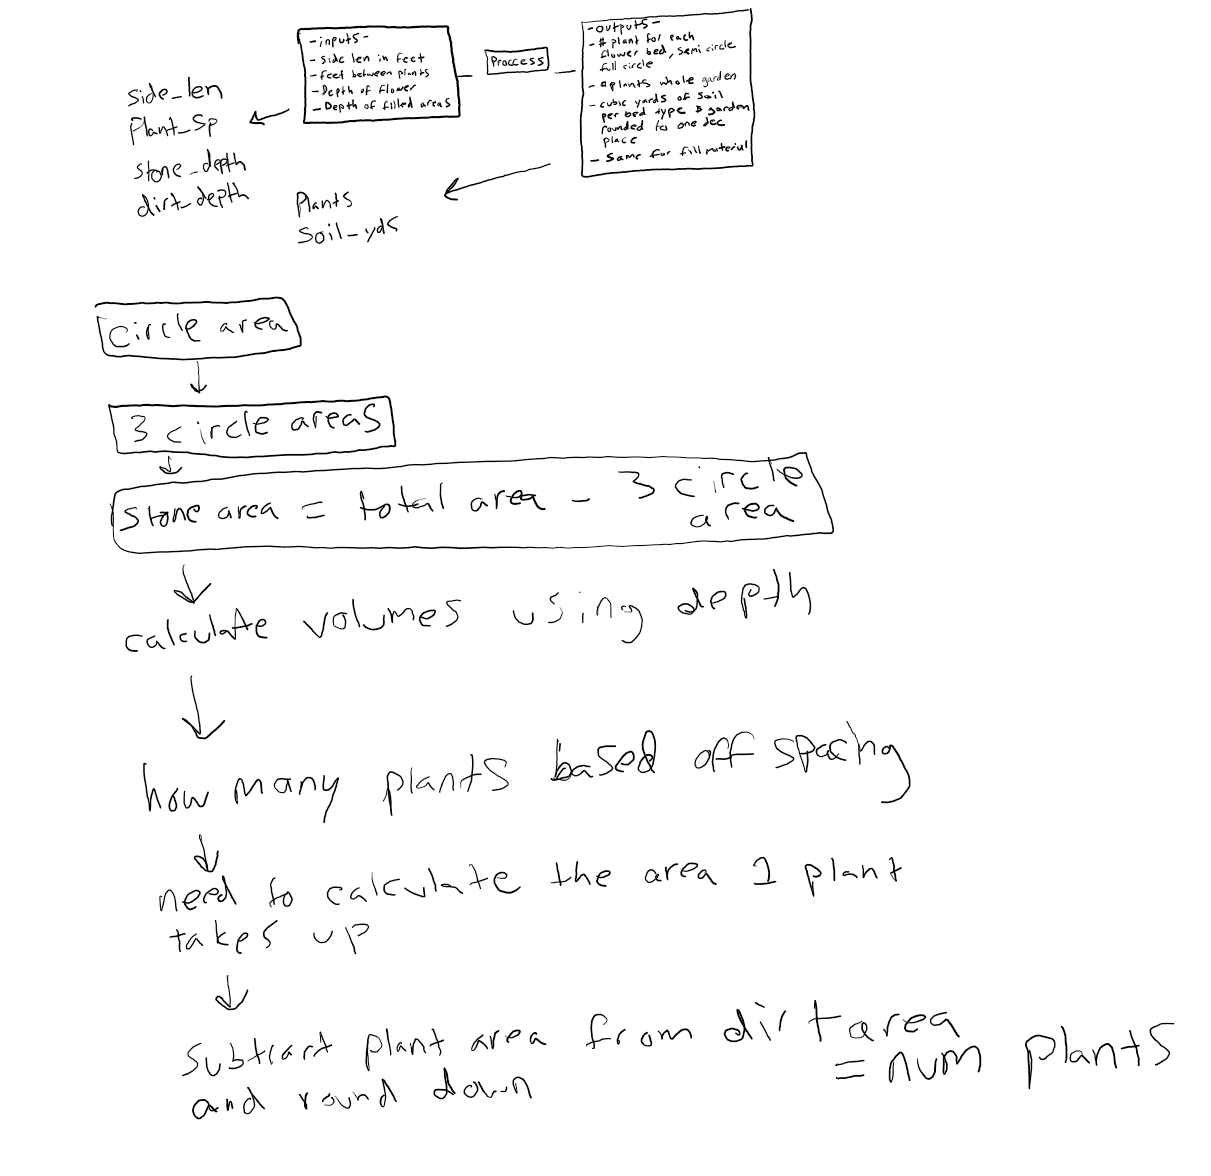 -inputs-
- side len in feet
- feet between plants
- Depth of flower
- Depth of filled areas
Proccess
-outputs-
- # plant for each
flower bed, semi circle
full circle
- #plants whole garden
- cubic yards of soil
per bed type & garden
rounded to one dec
place
- Same for fill material
side_len
Plant_Sp
stone_depth
dirt_depth
Plants
Soil_yds
circle area
3 circle areas
stone area = total area - 3 circle
area
calculate volumes using depth
how many plants based off spacing
need to calculate the area 1 plant
takes up
subtract plant area from dirt area
and round down = num plants